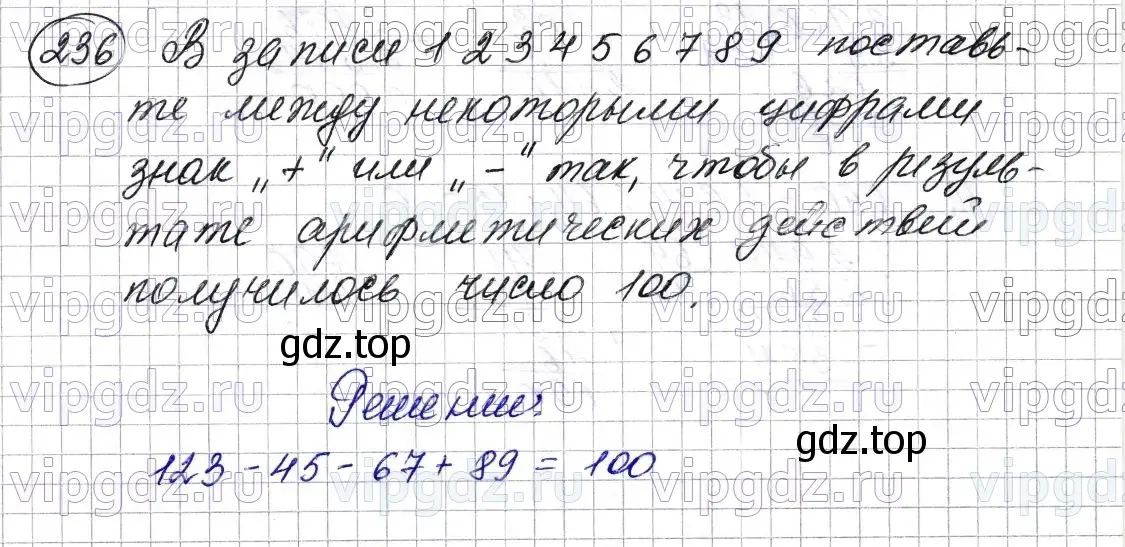 236 В записи 1 2 3 4 5 6 7 8 9 поставь-
те между некоторыми цифрами
знак „+“ или „-“ так, чтобы в резуль-
тате арифметических действий
получилось число 100.
gdz.top
Решение:
gdz.top
123 - 45 - 67 + 89 = 100